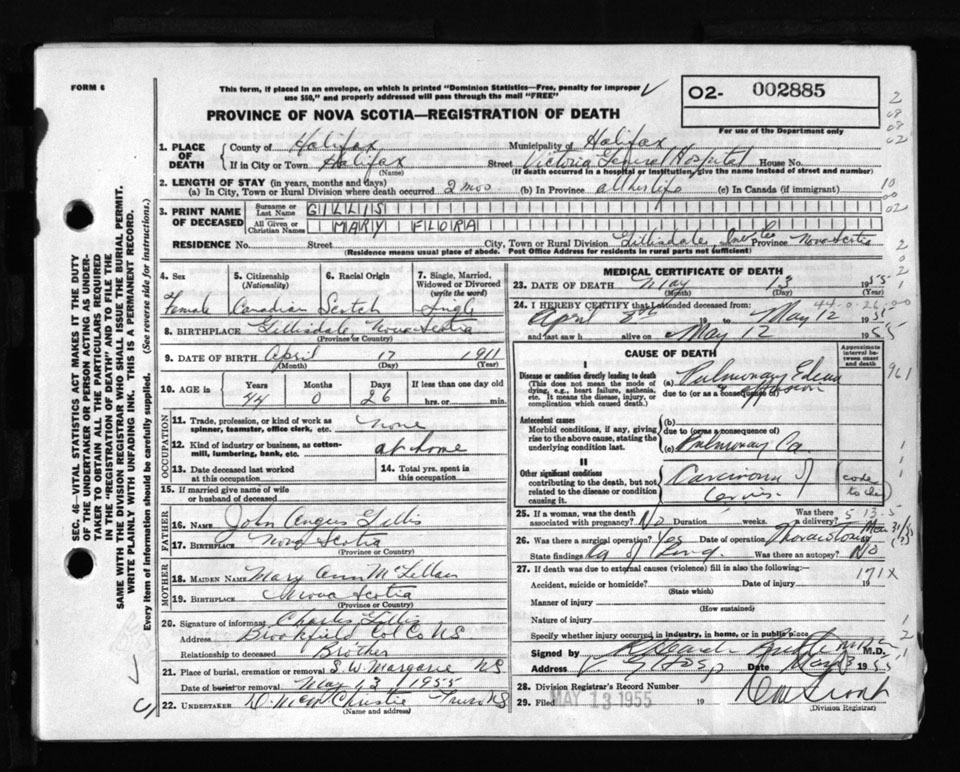 FORM 6
This form, if placed in an envelope, on which is printed "Dominion Statistics—Free, penalty for improper
use $50," and properly addressed will pass through the mail "FREE"
O2- 002885
PROVINCE OF NOVA SCOTIA—REGISTRATION OF DEATH
For use of the Department only
1. PLACE OF DEATH
County of Halifax Municipality of Halifax
If in City or Town Halifax Street Victoria General Hospital House No.
(Name) (If death occurred in a hospital or institution, give the name instead of street and number)
2. LENGTH OF STAY (in years, months and days)
(a) In City, Town or Rural Division where death occurred 2 mos (b) In Province all her life (c) In Canada (if immigrant)
3. PRINT NAME OF DECEASED
Surname or Last Name GILLIS
All Given or Christian Names MARY FLORA
RESIDENCE No. Street City, Town or Rural Division Gillisdale, Inv Co Province Nova Scotia
(Residence means usual place of abode. Post Office Address for residents in rural parts not sufficient)
4. Sex 5. Citizenship (Nationality) 6. Racial Origin 7. Single, Married, Widowed or Divorced (write the word)
Female Canadian Scotch Single
8. BIRTHPLACE Gillisdale, Nova Scotia
(Province or Country)
9. DATE OF BIRTH April 17 1911
(Month) (Day) (Year)
10. AGE in Years Months Days If less than one day old
44 0 26 hrs. or min.
OCCUPATION
11. Trade, profession, or kind of work as spinner, teamster, office clerk, etc. none
12. Kind of industry or business, as cotton-mill, lumbering, bank, etc. at home
13. Date deceased last worked at this occupation
14. Total yrs. spent in this occupation
15. If married give name of wife or husband of deceased
FATHER
16. NAME John Angus Gillis
17. BIRTHPLACE Nova Scotia
(Province or Country)
MOTHER
18. MAIDEN NAME Mary Ann McLellan
19. BIRTHPLACE Nova Scotia
(Province or Country)
20. Signature of informant Charles Gillis
Address Brookfield Col Co NS
Relationship to deceased Brother
21. Place of burial, cremation or removal S.W. Margaree NS
Date of burial or removal May 13/1955
22. UNDERTAKER Christie Truro NS
(Name and address)
MEDICAL CERTIFICATE OF DEATH
23. DATE OF DEATH May 13 1955
(Month) (Day)
24. I HEREBY CERTIFY that I attended deceased from
April 19 to May 12 19
and last saw h alive on May 12 1955
CAUSE OF DEATH
Approximate interval between onset and death
I
Disease or condition directly leading to death
(This does not mean the mode of dying, e.g., heart failure, asthenia, etc. It means the disease, injury, or complication which caused death.)
(a) Pulmonary Edema & effusion
due to (or as a consequence of)
Antecedent causes
Morbid conditions, if any, giving rise to the above cause, stating the underlying condition last.
(b)
due to (or as a consequence of)
(c) Pulmonary Ca.
II
Other significant conditions contributing to the death, but not related to the disease or condition causing it.
Carcinoma of Cervix.
25. If a woman, was the death associated with pregnancy? No Duration weeks. Was there a delivery?
26. Was there a surgical operation? Yes Date of operation
State findings Ca of Lung. Was there an autopsy? No
27. If death was due to external causes (violence) fill in also the following:-
171X
Accident, suicide or homicide? Date of injury 19
(State which)
Manner of injury
(How sustained)
Nature of injury
Specify whether injury occurred in industry, in home, or in public place
Signed by M.D.
Address Date May 13 1955
28. Division Registrar's Record Number
29. Filed MAY 13 1955 19
(Division Registrar)
SEC. 46—VITAL STATISTICS ACT MAKES IT THE DUTY
OF THE UNDERTAKER OR PERSON ACTING AS UNDER-
TAKER TO OBTAIN ALL THE PARTICULARS REQUIRED
IN THE "REGISTRATION OF DEATH" AND TO FILE THE
SAME WITH THE DIVISION REGISTRAR WHO SHALL ISSUE THE BURIAL PERMIT.
WRITE PLAINLY WITH UNFADING INK. THIS IS A PERMANENT RECORD.
Every item of information should be carefully supplied. (See reverse side for instructions.)